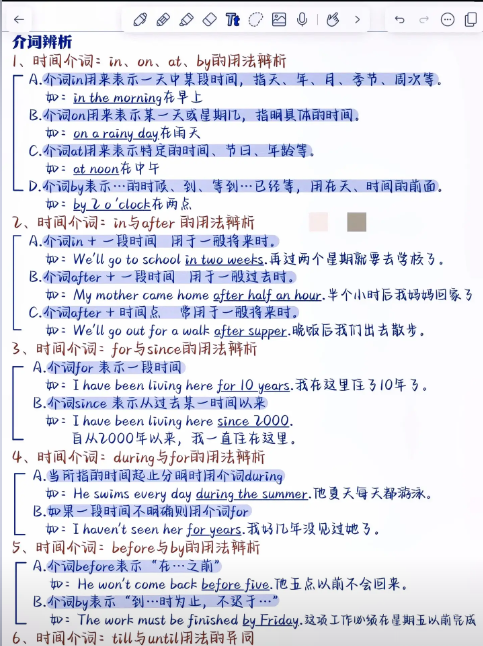 Tt
介词辨析
1、时间介词：in、on、at、by的用法辨析
A.介词in用来表示一天中某段时间，指天、年、月、季节、周次等。
如：in the morning在早上
B.介词on用来表示某一天或星期几，指明具体的时间。
如：on a rainy day在雨天
C.介词at用来表示特定的时间、节日、年龄等。
如：at noon在中午
D.介词by表示…的时候、到、等到…已经等，用在天、时间的前面。
如：by 2 o'clock在两点
2、时间介词：in与after 的用法辨析
A.介词in + 一段时间 用于一般将来时。
如：We'll go to school in two weeks.再过两个星期就要去学校了。
B.介词after + 一段时间 用于一般过去时。
如：My mother came home after half an hour.半个小时后我妈妈回家了
C.介词after + 时间点 常用于一般将来时。
如：We'll go out for a walk after supper.晚饭后我们出去散步。
3、时间介词：for与since的用法辨析
A.介词for 表示一段时间
如：I have been living here for 10 years.我在这里住了10年了。
B.介词since 表示从过去某一时间以来
如：I have been living here since 2000.
自从2000年以来，我一直住在这里。
4、时间介词：during与for的用法辨析
A.当所指的时间起止分明时用介词during
如：He swims every day during the summer.他夏天每天都游泳。
B.如果一段时间不明确则用介词for
如：I haven't seen her for years.我好几年没见过她了。
5、时间介词：before与by的用法辨析
A.介词before表示“在…之前”
如：He won't come back before five.他五点以前不会回来。
B.介词by表示“到…时为止，不迟于…”
如：The work must be finished by Friday.这项工作必须在星期五以前完成
6、时间介词：till与until用法的异同